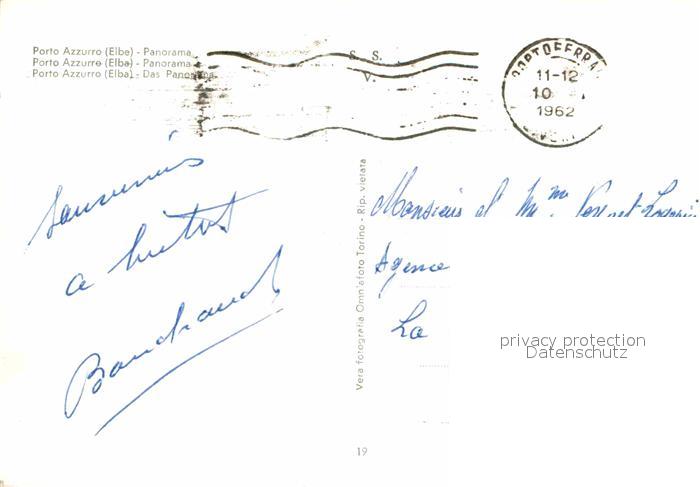 Porto Azzurro (Elbe) - Panorama
Porto Azzurro (Elba) - Panorama
Porto Azzurro (Elba) - Das Panorama
S. S.
V.
PORTOFERRA
11-12
10
1962
Souvenirs
a
Vera fotografia Omniafoto Torino - Rip. vietata
Monsieur et Mme
Agence
La
privacy protection
Datenschutz
19